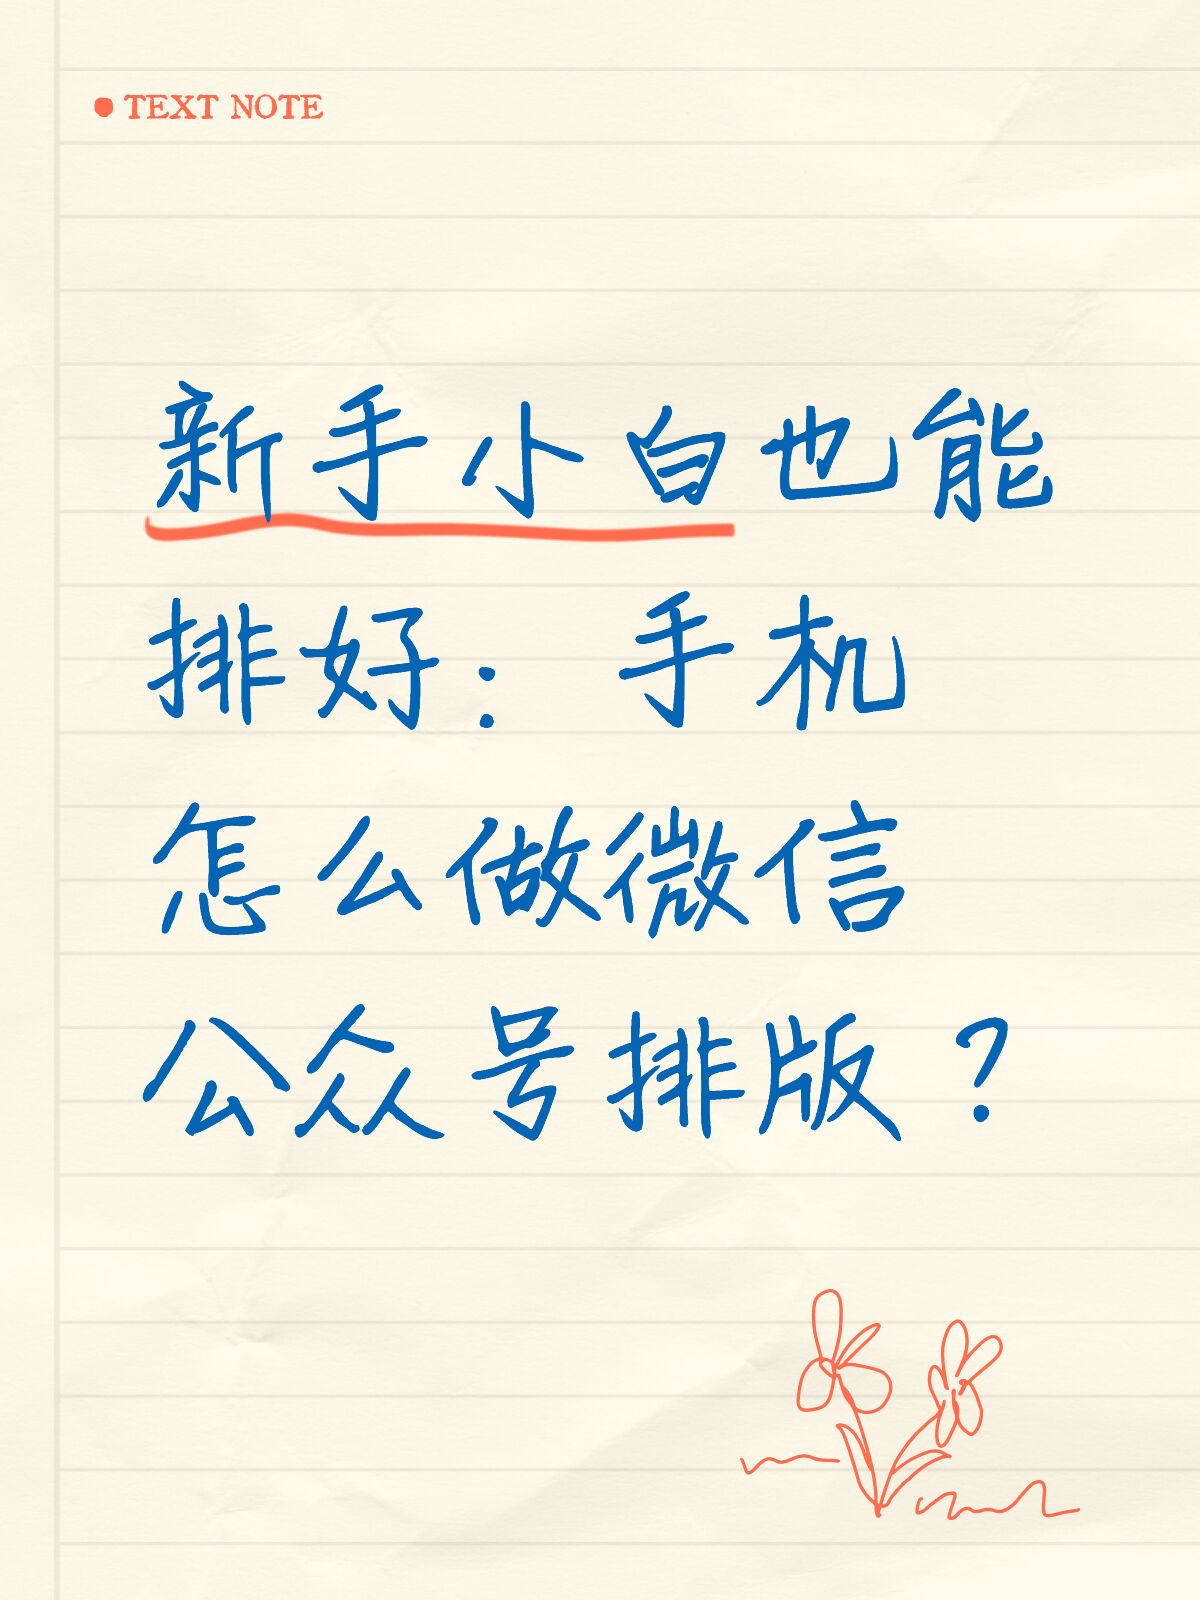 TEXT NOTE
新手小白也能
排好：手机
怎么做微信
公众号排版？